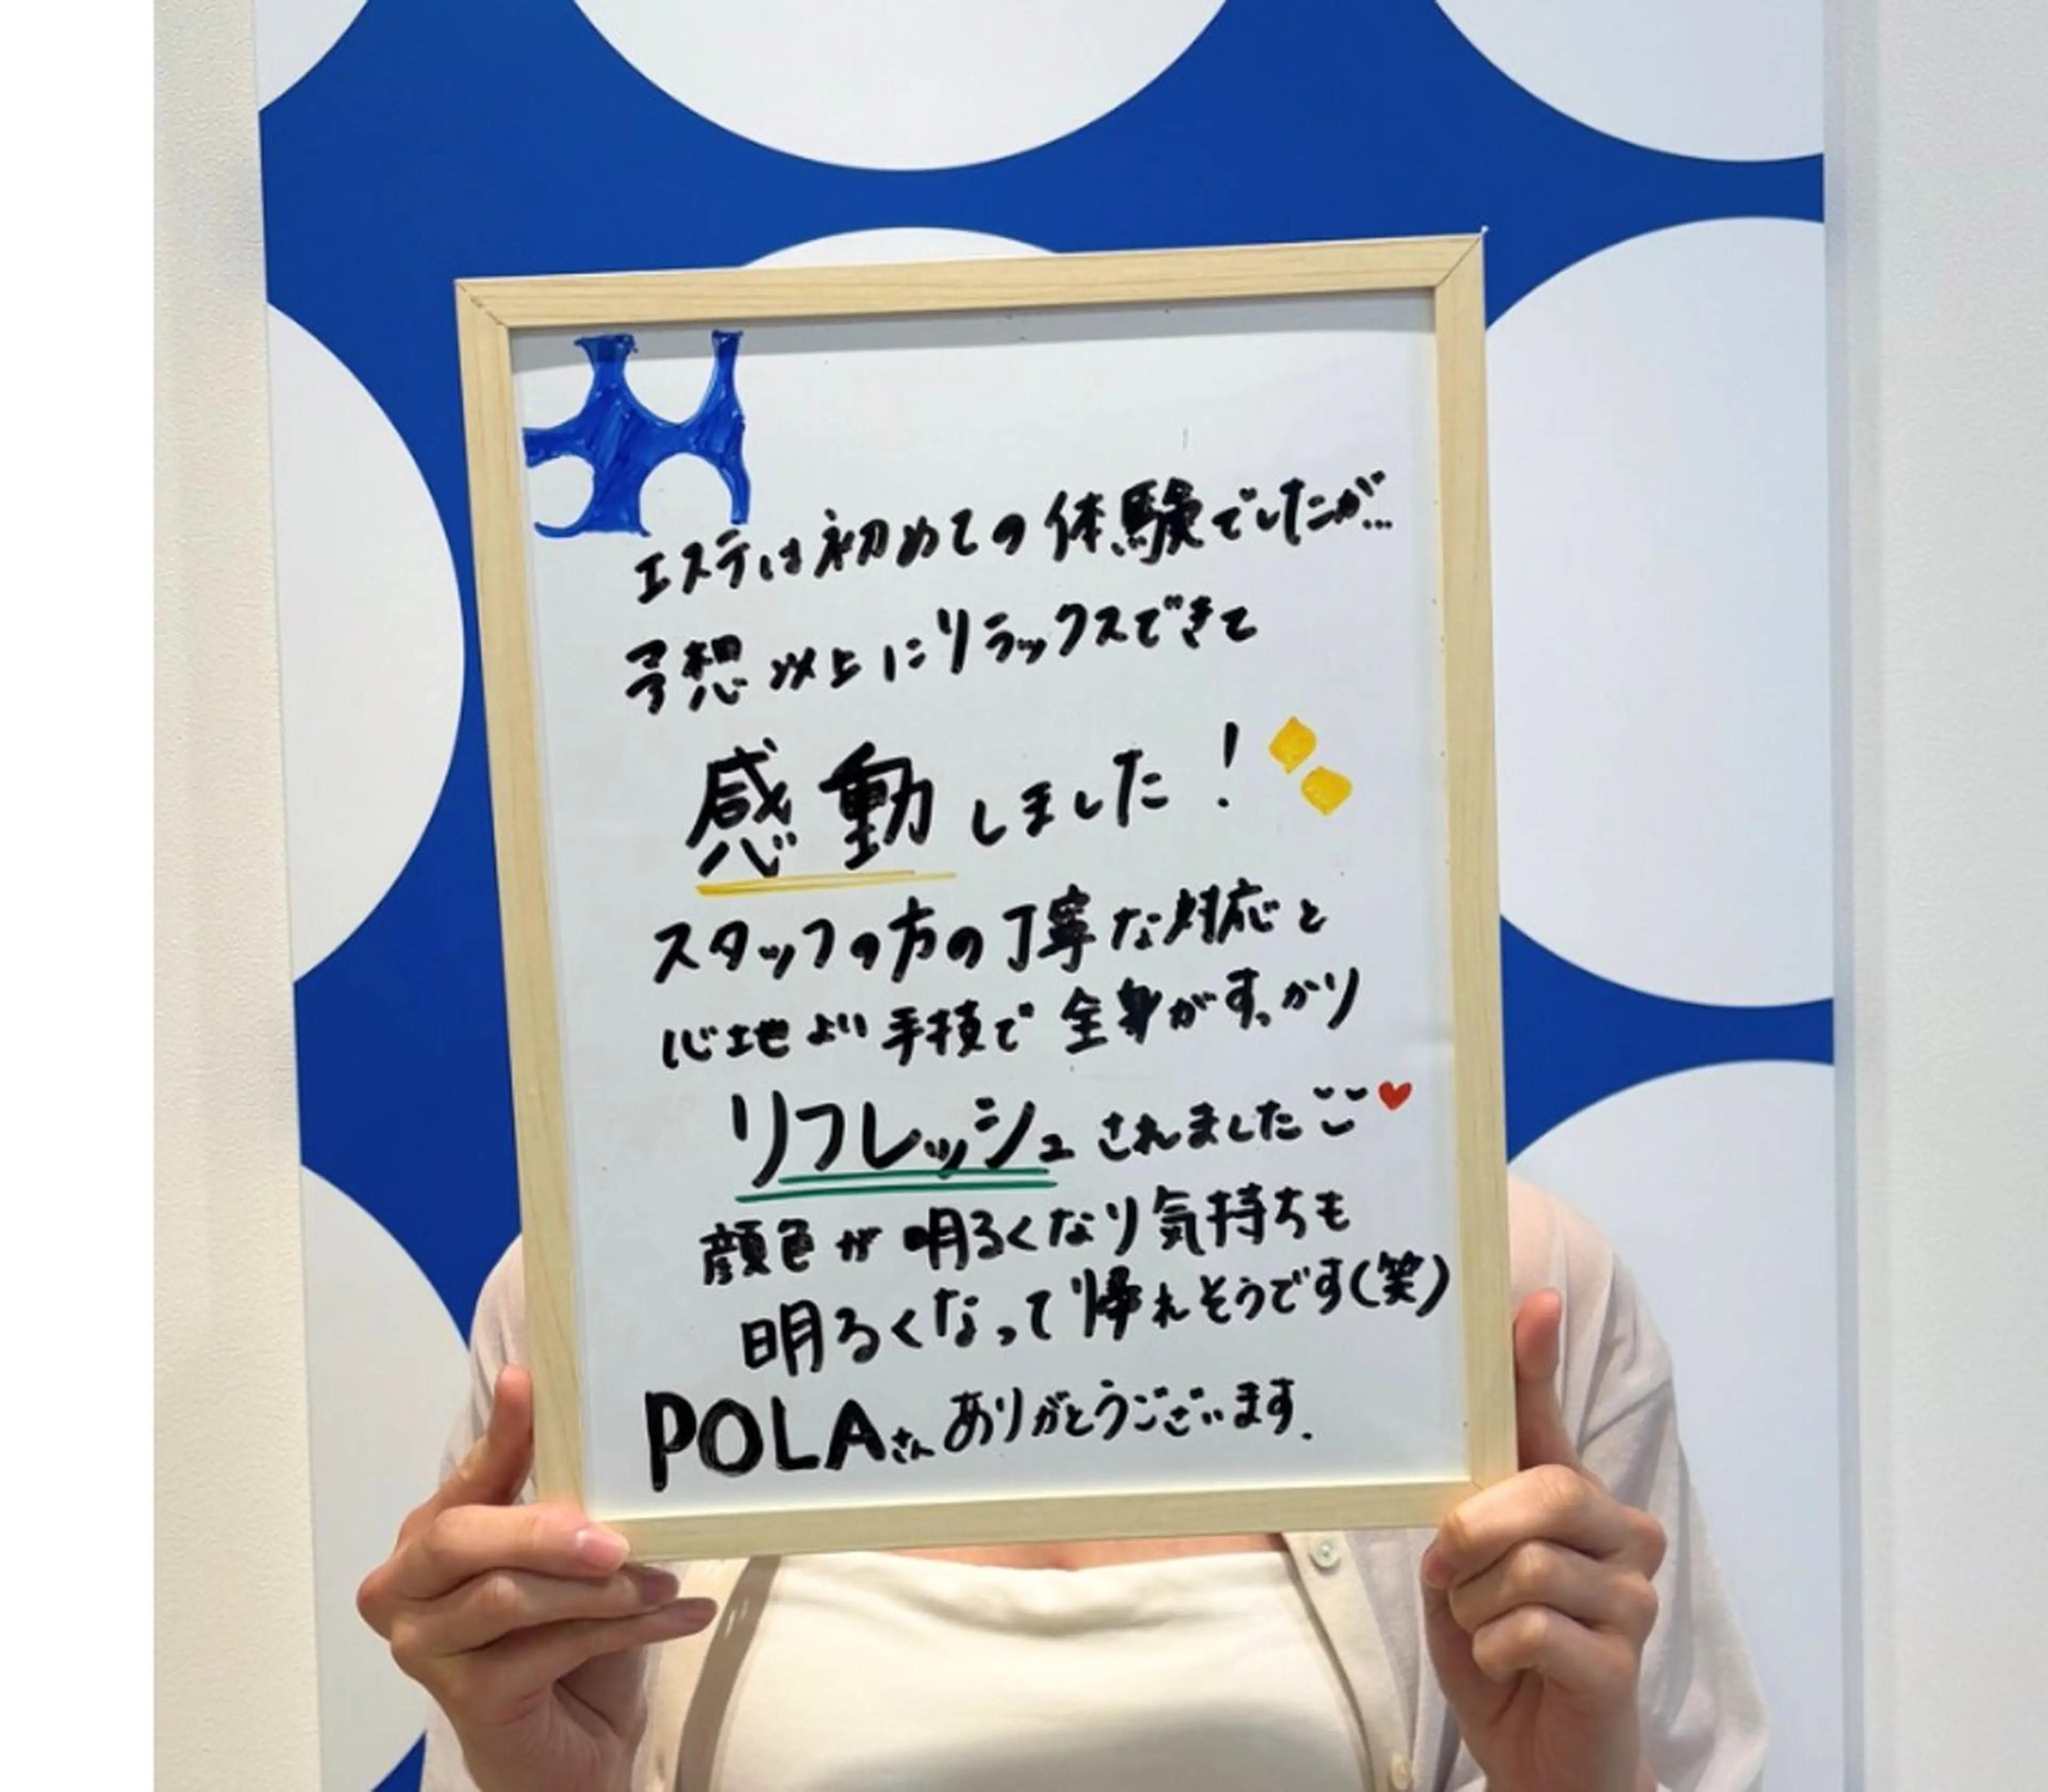 エステは初めての体験でしたが…
予想以上にリラックスできて
感動しました!
スタッフの方の丁寧な対応と
心地よい手技で全身がすっかり
リフレッシュされました
顔色が明るくなり気持ちも
明るくなって帰れそうです(笑)
POLAさんありがとうございます.